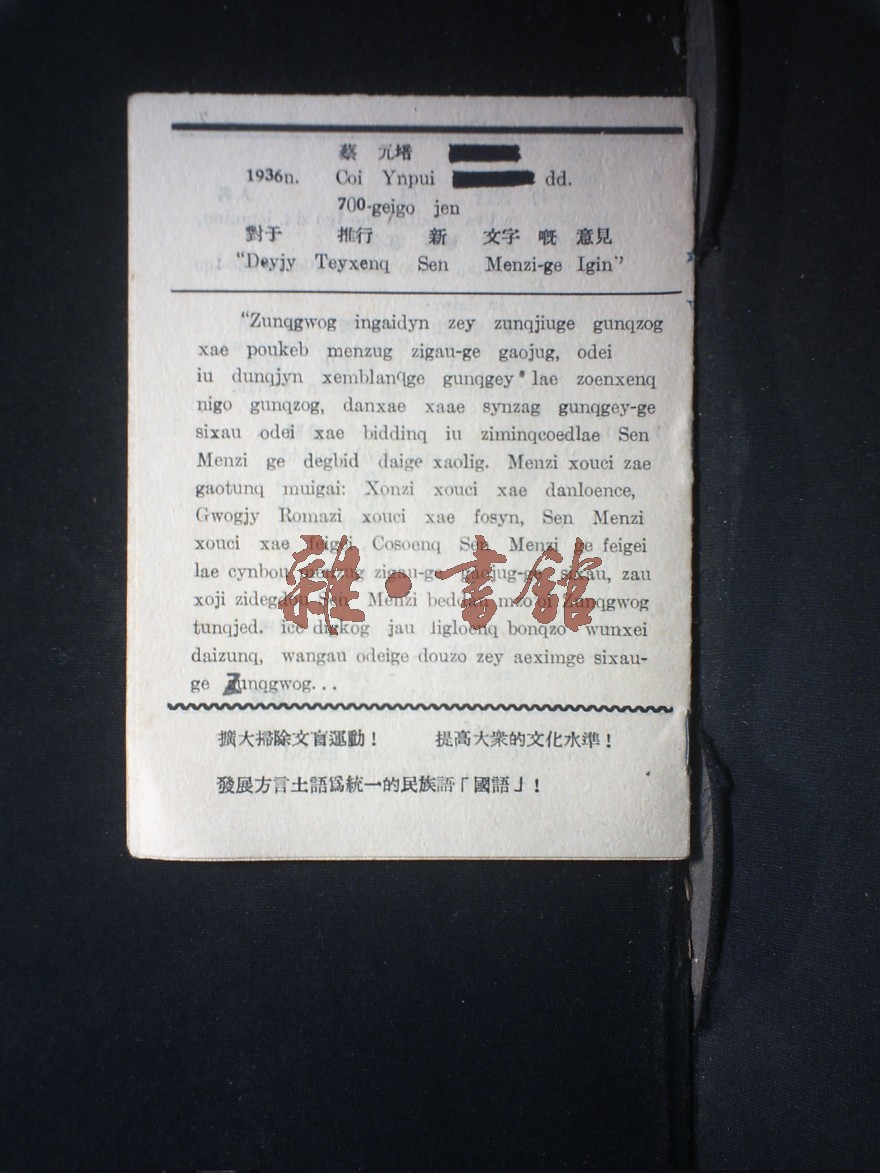 蔡 元培
1936n. Coi Ynpui dd.
700-geigo jen
對于 推行 新 文字 嘅 意見
“Deyjy Teyxenq Sen Menzi-ge Igin”
“Zunqgwog ingaidyn zey zunqjiuge gunqzog
xae poukeb menzug zigau-ge gaojug, odei
iu dunqjyn xemblanqge gunqgey lae zoenxenq
nigo gunqzog, danxae xaae synzag gunqgey-ge
sixau odei xae biddinq iu ziminqcoedlae Sen
Menzi ge degbid daige xaolig. Menzi xouci zae
gaotunq muigai: Xonzi xouci xae danloence,
Gwogjy Romazi xouci xae fosyn, Sen Menzi
xouci xae feigei Cosoenq Sen Menzi ge feigei
lae cynbou menzug zigau-ge gaojug-ge sixau, zau
xoji zidegdou Sen Menzi beddan Zunqgwog
tunqjed. ice digkog jau ligloenq bonqzo wunxei
daizunq, wangau odeige douzo zey aeximge sixau-
ge Zunqgwog...
擴大掃除文盲運動！ 提高大衆的文化水準！
發展方言土語爲統一的民族語「國語」！
雜·書館